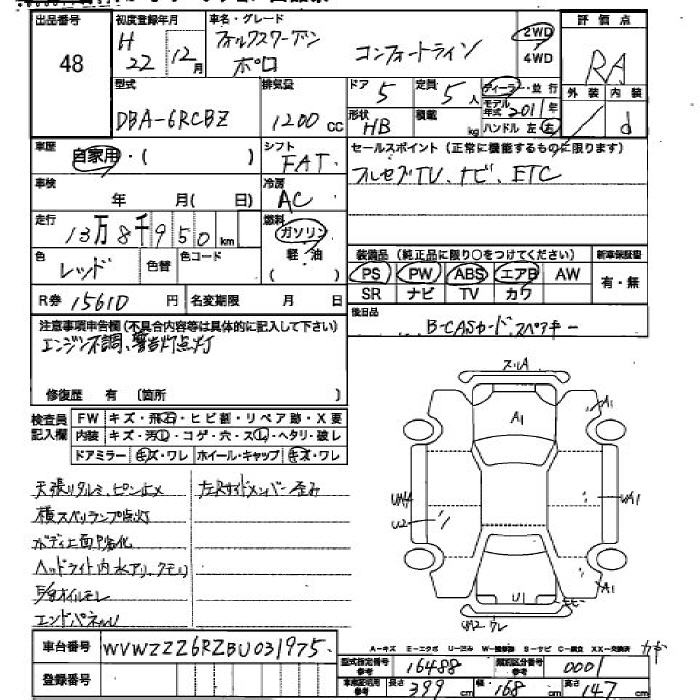 出品番号
48
初度登録年月
H
22 12月
車名・グレード
フォルクスワーゲン
ポロ
コンフォートライン
2WD
4WD
評価点
RA
外装 内装
d
型式
DBA-6RCBZ
排気量
1200 cc
ドア
5
定員
5人
形状
HB
積載
kg
ディーラー・並行
モデル年式 2011年
ハンドル 左・右
車歴
自家用・( )
シフト
FAT
セールスポイント（正常に機能するものに限ります）
フルセグTV、ナビ、ETC
車検
年 月(日)
冷房
AC
走行
13万8千950km
燃料
ガソリン
軽・油
( )
色
レッド
色替
色コード
装備品（純正品に限り○をつけてください）
新車保証書
PS PW ABS エアB AW
SR ナビ TV カワ
有・無
R券 15610円
名変期限 月 日
後日品
B-CASカード、スペアキー
注意事項申告欄（不具合内容等は具体的に記入して下さい）
エンジン不調、警告灯点灯
修復歴 有 〔箇所 〕
検査員
記入欄
FW キズ・飛石・ヒビ割・リペア跡・X要
内装 キズ・汚レ・コゲ・穴・スレ・ヘタリ・破レ
ドアミラー キズ・ワレ ホイール・キャップ キズ・ワレ
天張リタルミ、ピン止メ
横スベリランプ点灯
ボディ上面劣化
ヘッドライト内水アリ、クモリ
E/gオイルモレ
エンドパネルU
左Rサイドメンバー歪み
スリA
A1
A1
UA1
U2
A1
U1
UA2 ワレ
車台番号 WVWZZZ6RZBU031975
登録番号
A-キズ E-エクボ U-凹ミ W-補修跡 S-サビ C-腐食 XX-交換済
型式指定番号
参考
16488
類別区分番号
参考
0001
車検証明用
参考
長さ 399cm
幅 168cm
高さ 147cm